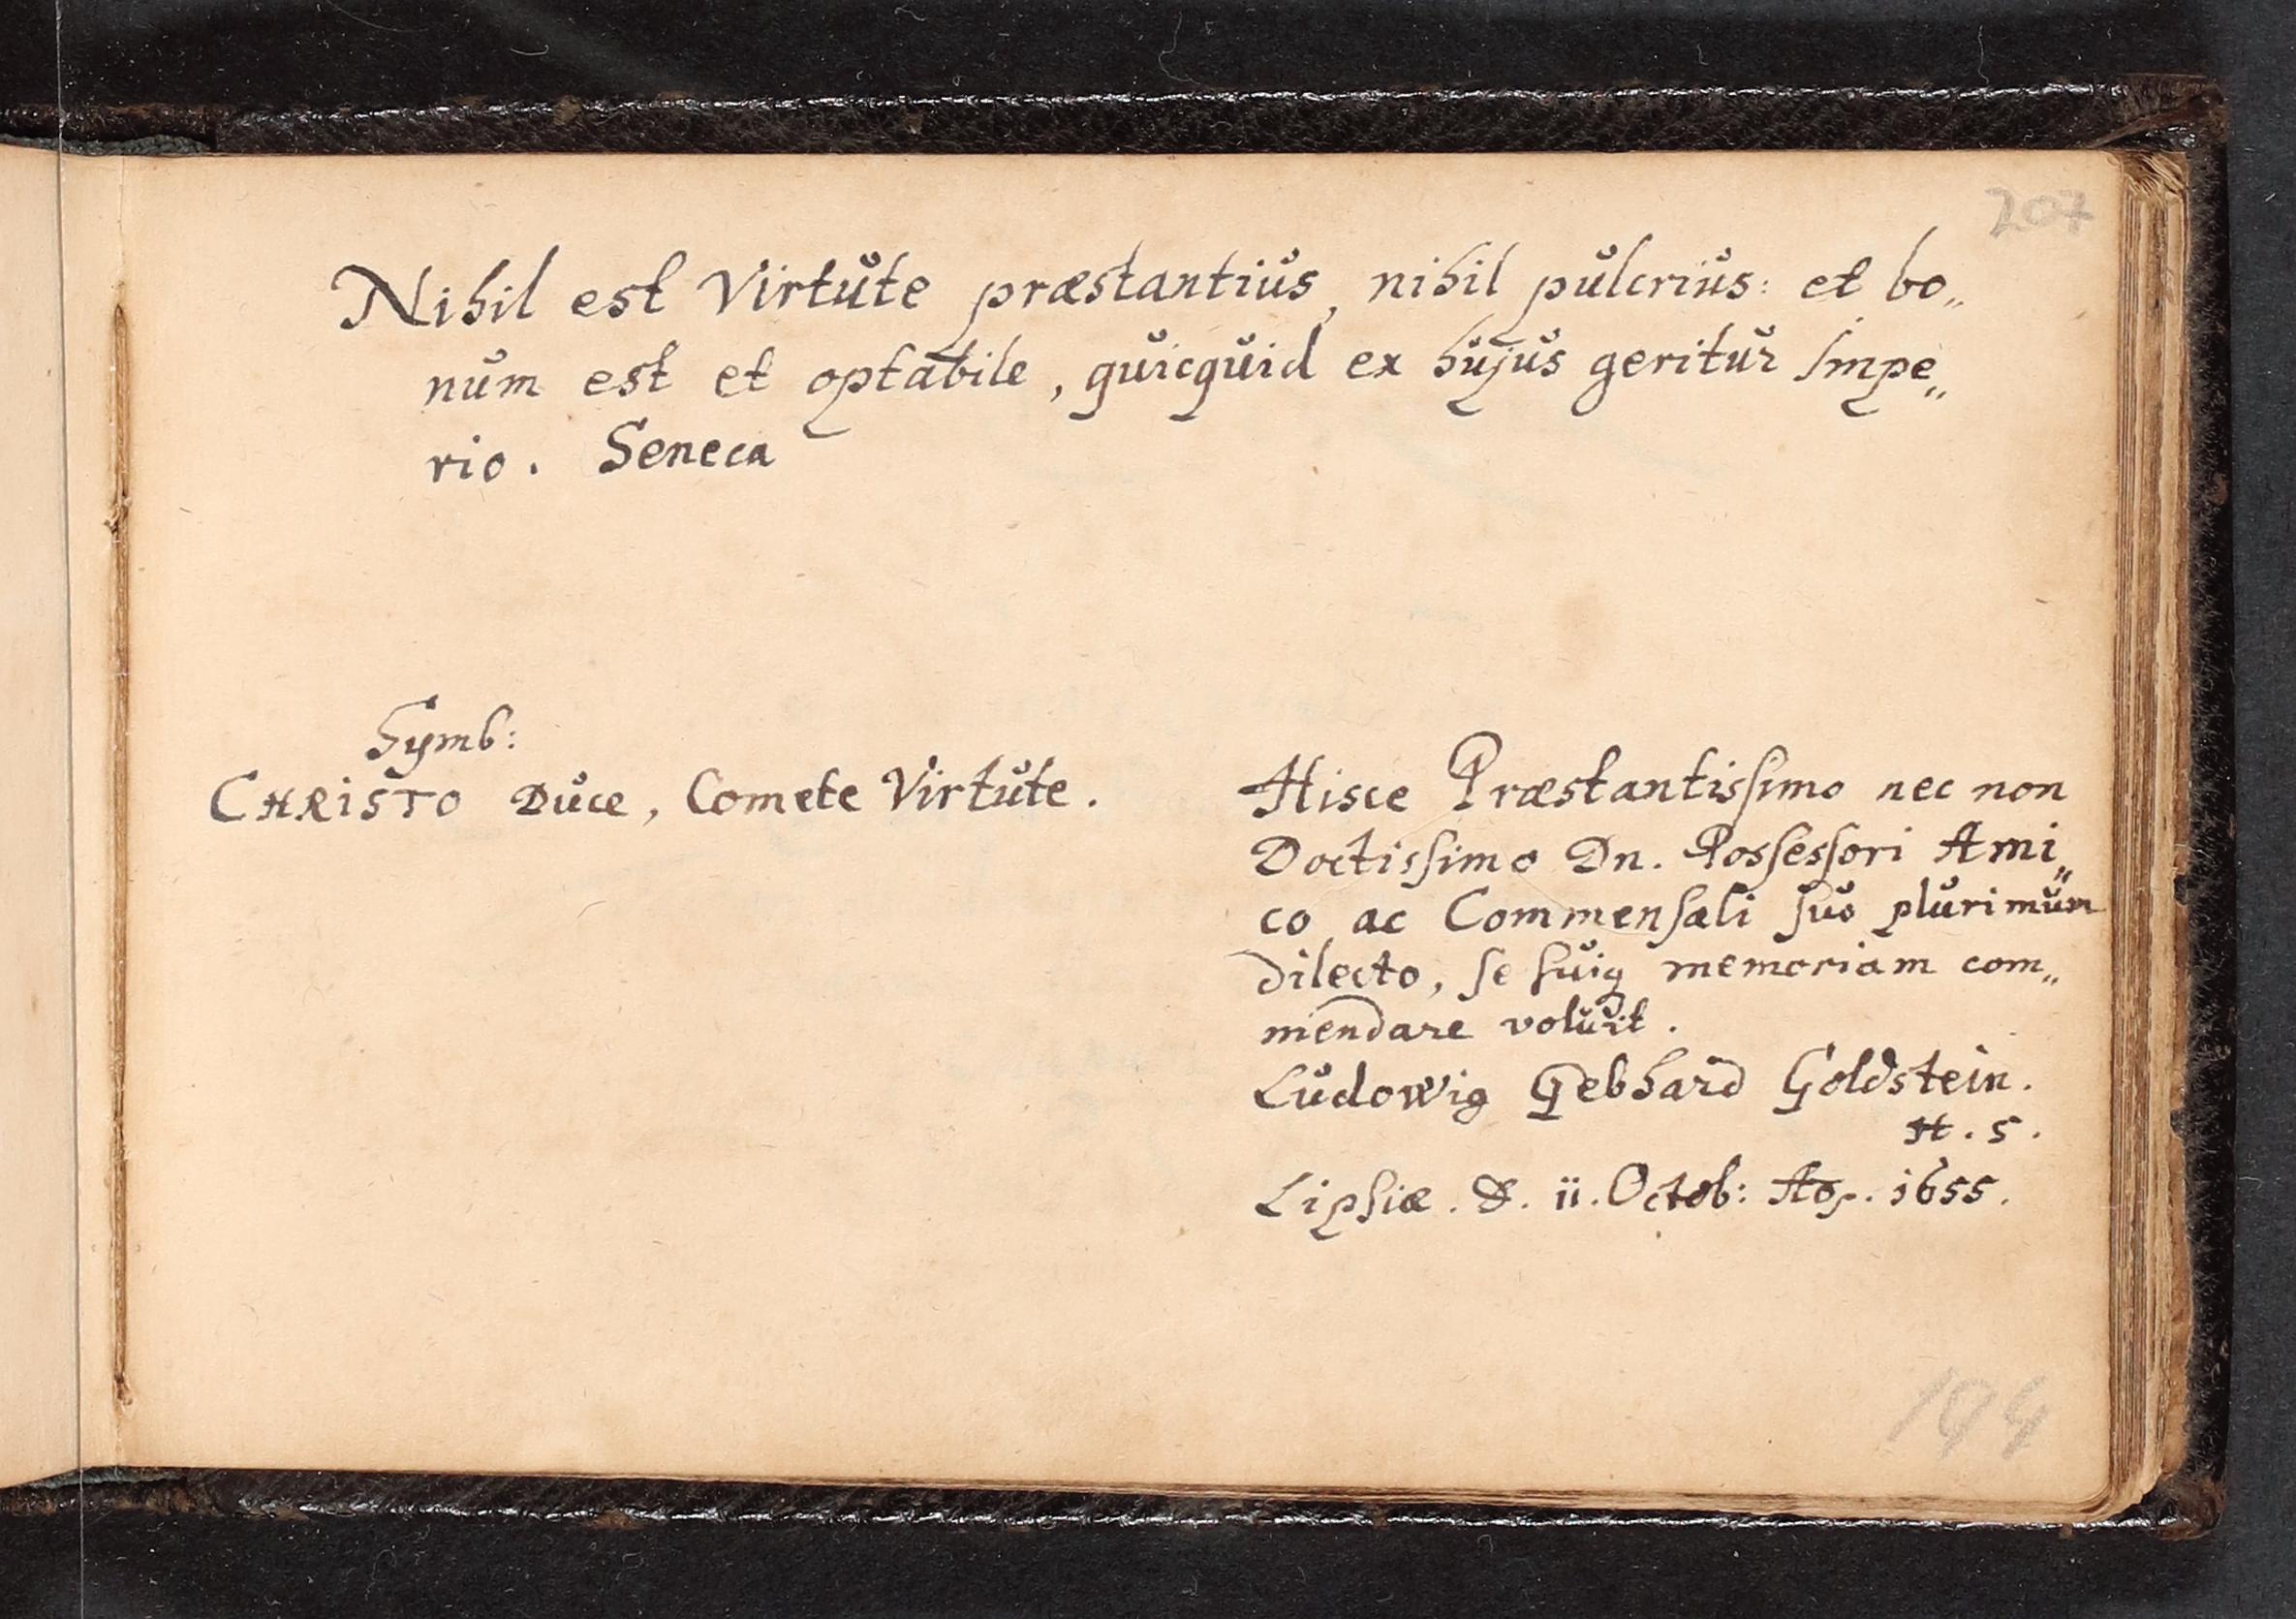 207
Nihil est Virtute præstantius, nihil pulcrius: et bo„
num est et optabile, quicquid ex hujus geritur Impe„
rio. Seneca
Symb:
CHRISTO Duce, Comete Virtute.
Hisce Præstantissimo nec non
Doctissimo Dn. Possessori Ami„
co ac Commensali suo plurimum
dilecto, se suiq memoriam com„
mendare voluit.
Ludowig Gebhard Goldstein.
H. S.
Lipsiæ. d. ii. Octob: Ao. 1655.
194